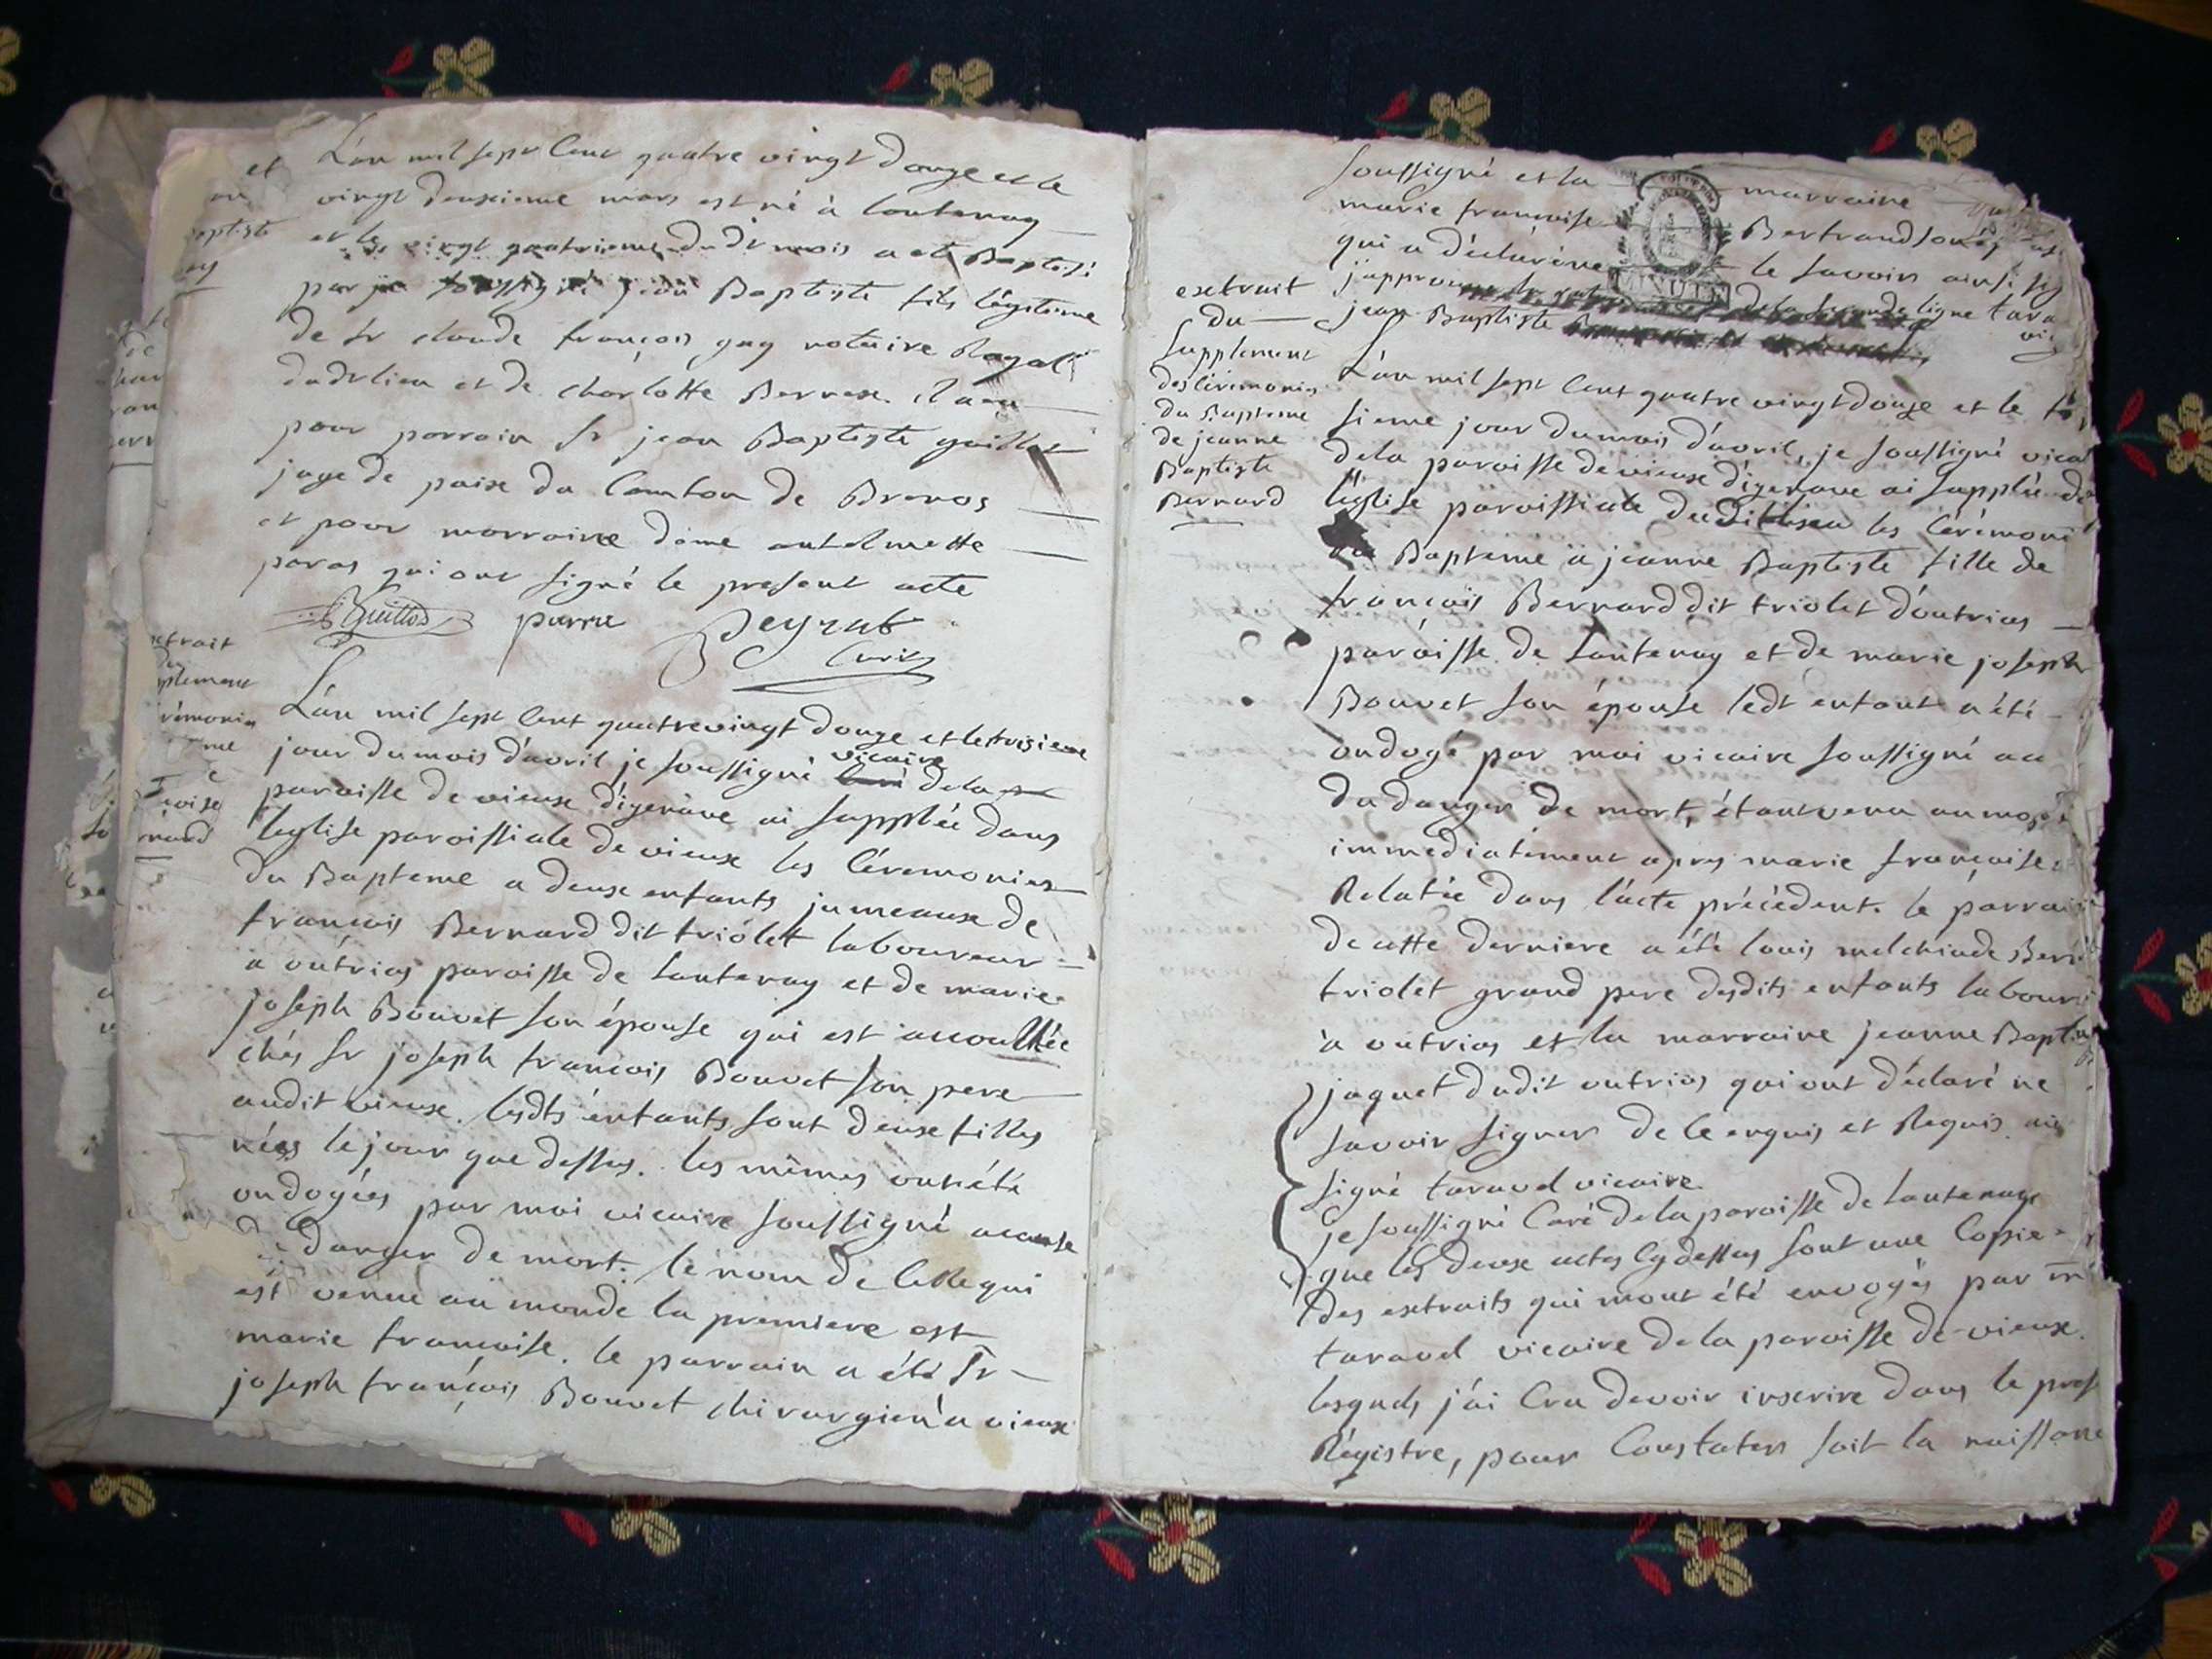 et
L'an mil sept cent quatre vingt douze et le
vingt deuxieme mars est né à lantenay
et le vingt quatrieme dudt mois a eté Baptisé
par je soussigné jean Baptiste fils légitime
de sr claude françois guy notaire Royal
dudt lieu et de charlotte Berrex. il a eu
pour parrain sr jean Baptiste guillot
juge de paix du Canton de Brenos
et pour marraine dame antelmette
paras qui ont signé le present acte
Guillot parra peyzat
curé
extrait
du
supplement
L'an mil sept cent quatrevingt douze et le troisieme
jour du mois d'avril je soussigné vicaire de la
paroisse de vieux d'izenave ai supplée dans
l'eglise paroissiale de vieux les Cérémonies
du Bapteme a deux enfants jumeaux de
francois Bernard dit triólet laboureur
à outrias paroisse de lantenay et de marie
joseph Bouvet son épouse qui est accouchée
chés sr joseph francois Bouvet son pere
audit vieux. lesdts enfants sont deux filles
nées le jour que dessus. les mêmes ont été
ondoyées par moi vicaire soussigné a cause
de danger de mort. le nom de celle qui
est venue au monde la premiere est
marie francoise. le parrain a été sr
joseph françois Bouvet chirurgien à vieux
soussigné et la marraine
marie francoise Bertrand
qui a déclaré ne le savoir ainsi
j'approuve de la seconde ligne
jean Baptiste
extrait
du
supplement
des Céremonies
du Bapteme
de jeanne
Baptiste
Bernard
L'an mil sept cent quatre vingt douze et le
sieme jour du mois d'avril, je soussigné
de la paroisse de vieux d'izenave ai supplée
l'église paroissiale dudit lieu les Cérémoni
du Bapteme à jeanne Baptiste fille de
francois Bernard dit triolet d'outrias
paroisse de lantenay et de marie joseph
Bouvet son épouse ledt enfant a été
ondoyé par moi vicaire soussigné au
du danger de mort, étant venu au monde
immediatement apres marie francoise
Relatée dans l'acte précédent. le parrain
de cette derniere a été louis melchiade
triolet grand pere desdits enfants labour
à outrias et la marraine jeanne Baptis
jaquet dudit outrias qui ont déclaré ne
savoir signer de ce enquis et Requis
signé taravel vicaire.
je soussigné Curé de la paroisse de lantenay
que les deux actes cy dessus sont une Copie
des extraits qui m'ont été envoyés par mr
taravel vicaire de la paroisse de vieux.
lesquels j'ai Cru devoir inscrire dans le pres
Régistre, pour Constater soit la naissance